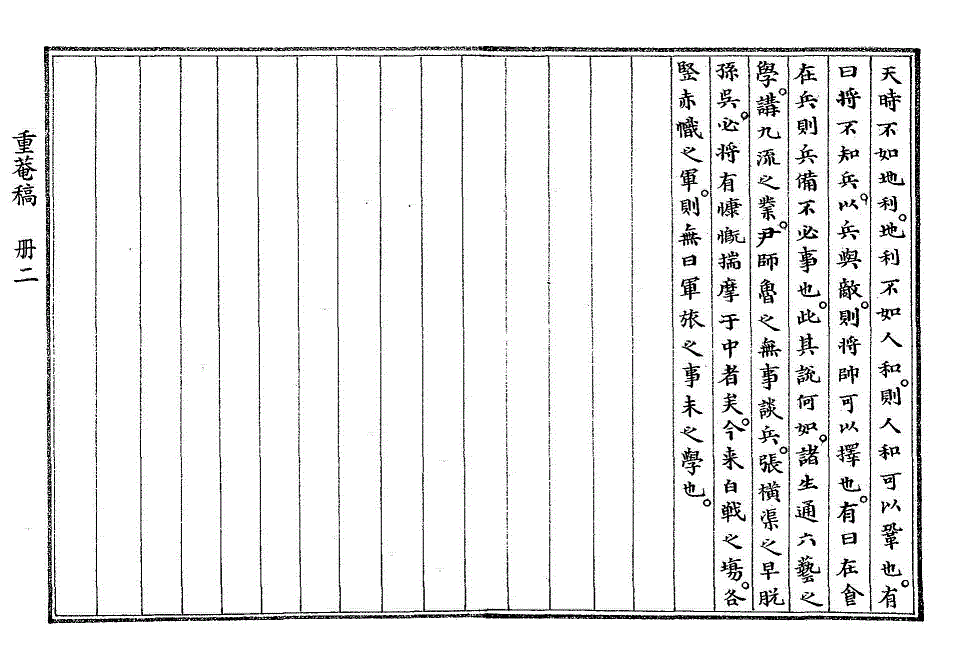 天時不如地利。地利不如人和。則人和可以鞏也。有
曰將不知兵。以兵與敵。則將帥可以擇也。有曰在食
在兵則兵備不必事也。此其說何如。諸生通六藝之
學。講九流之業。尹師魯之無事談兵。張橫渠之早脫
孫吳。必將有慷慨揣摩于中者矣。今来白戰之塲。各
竪赤幟之軍。則無曰軍旅之事未之學也。
重菴稿 册二